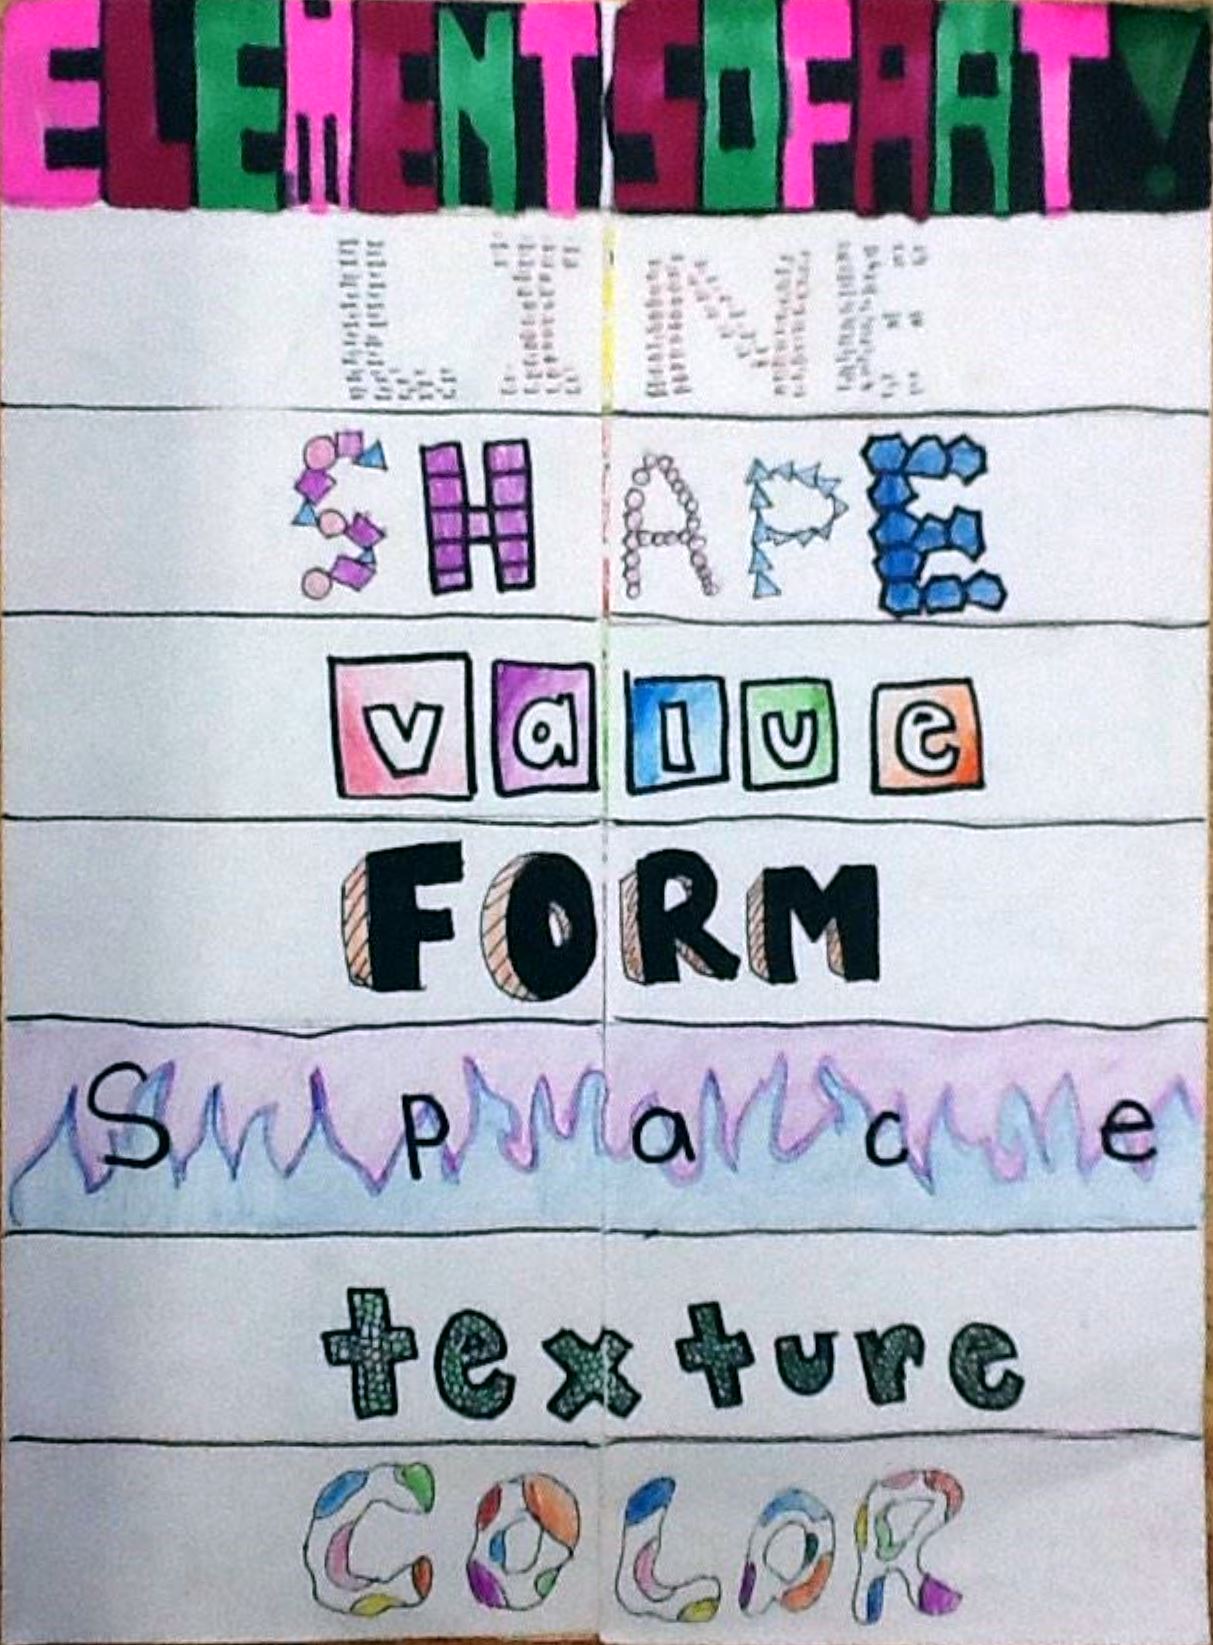 ELEMENTS OF ART!
LINE
SHAPE
value
FORM
Space
texture
COLOR